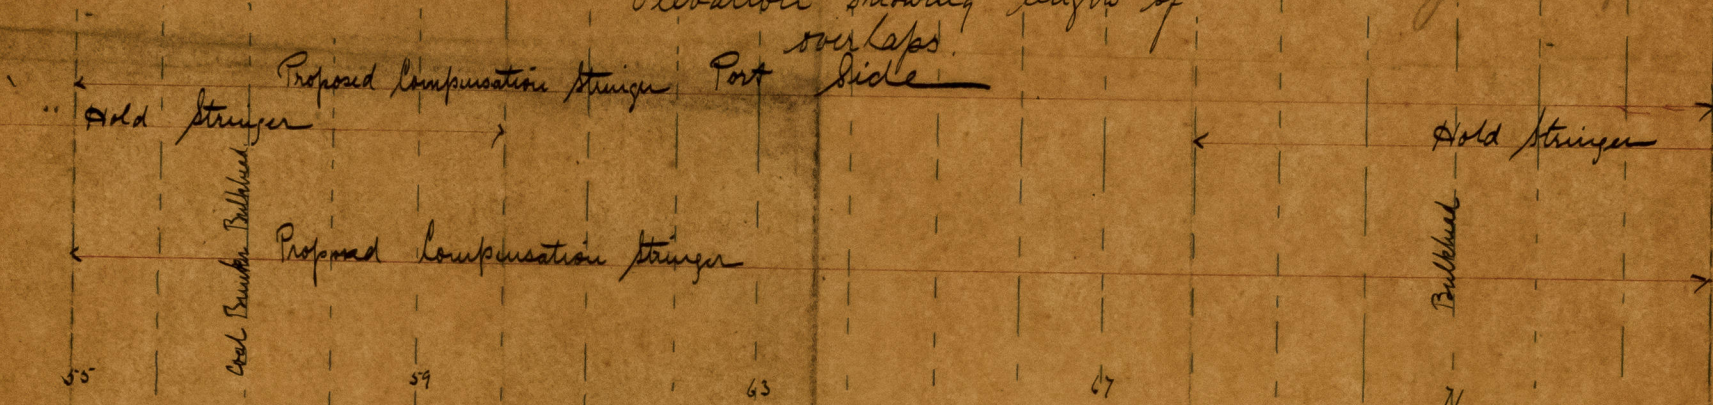 Elevation showing length of
overlaps.
Proposed Compensation Stringer Port Side
Hold Stringer
Hold Stringer
Coal Bunker Bulkhead
Proposed Compensation Stringer
Bulkhead
55 59 63 67